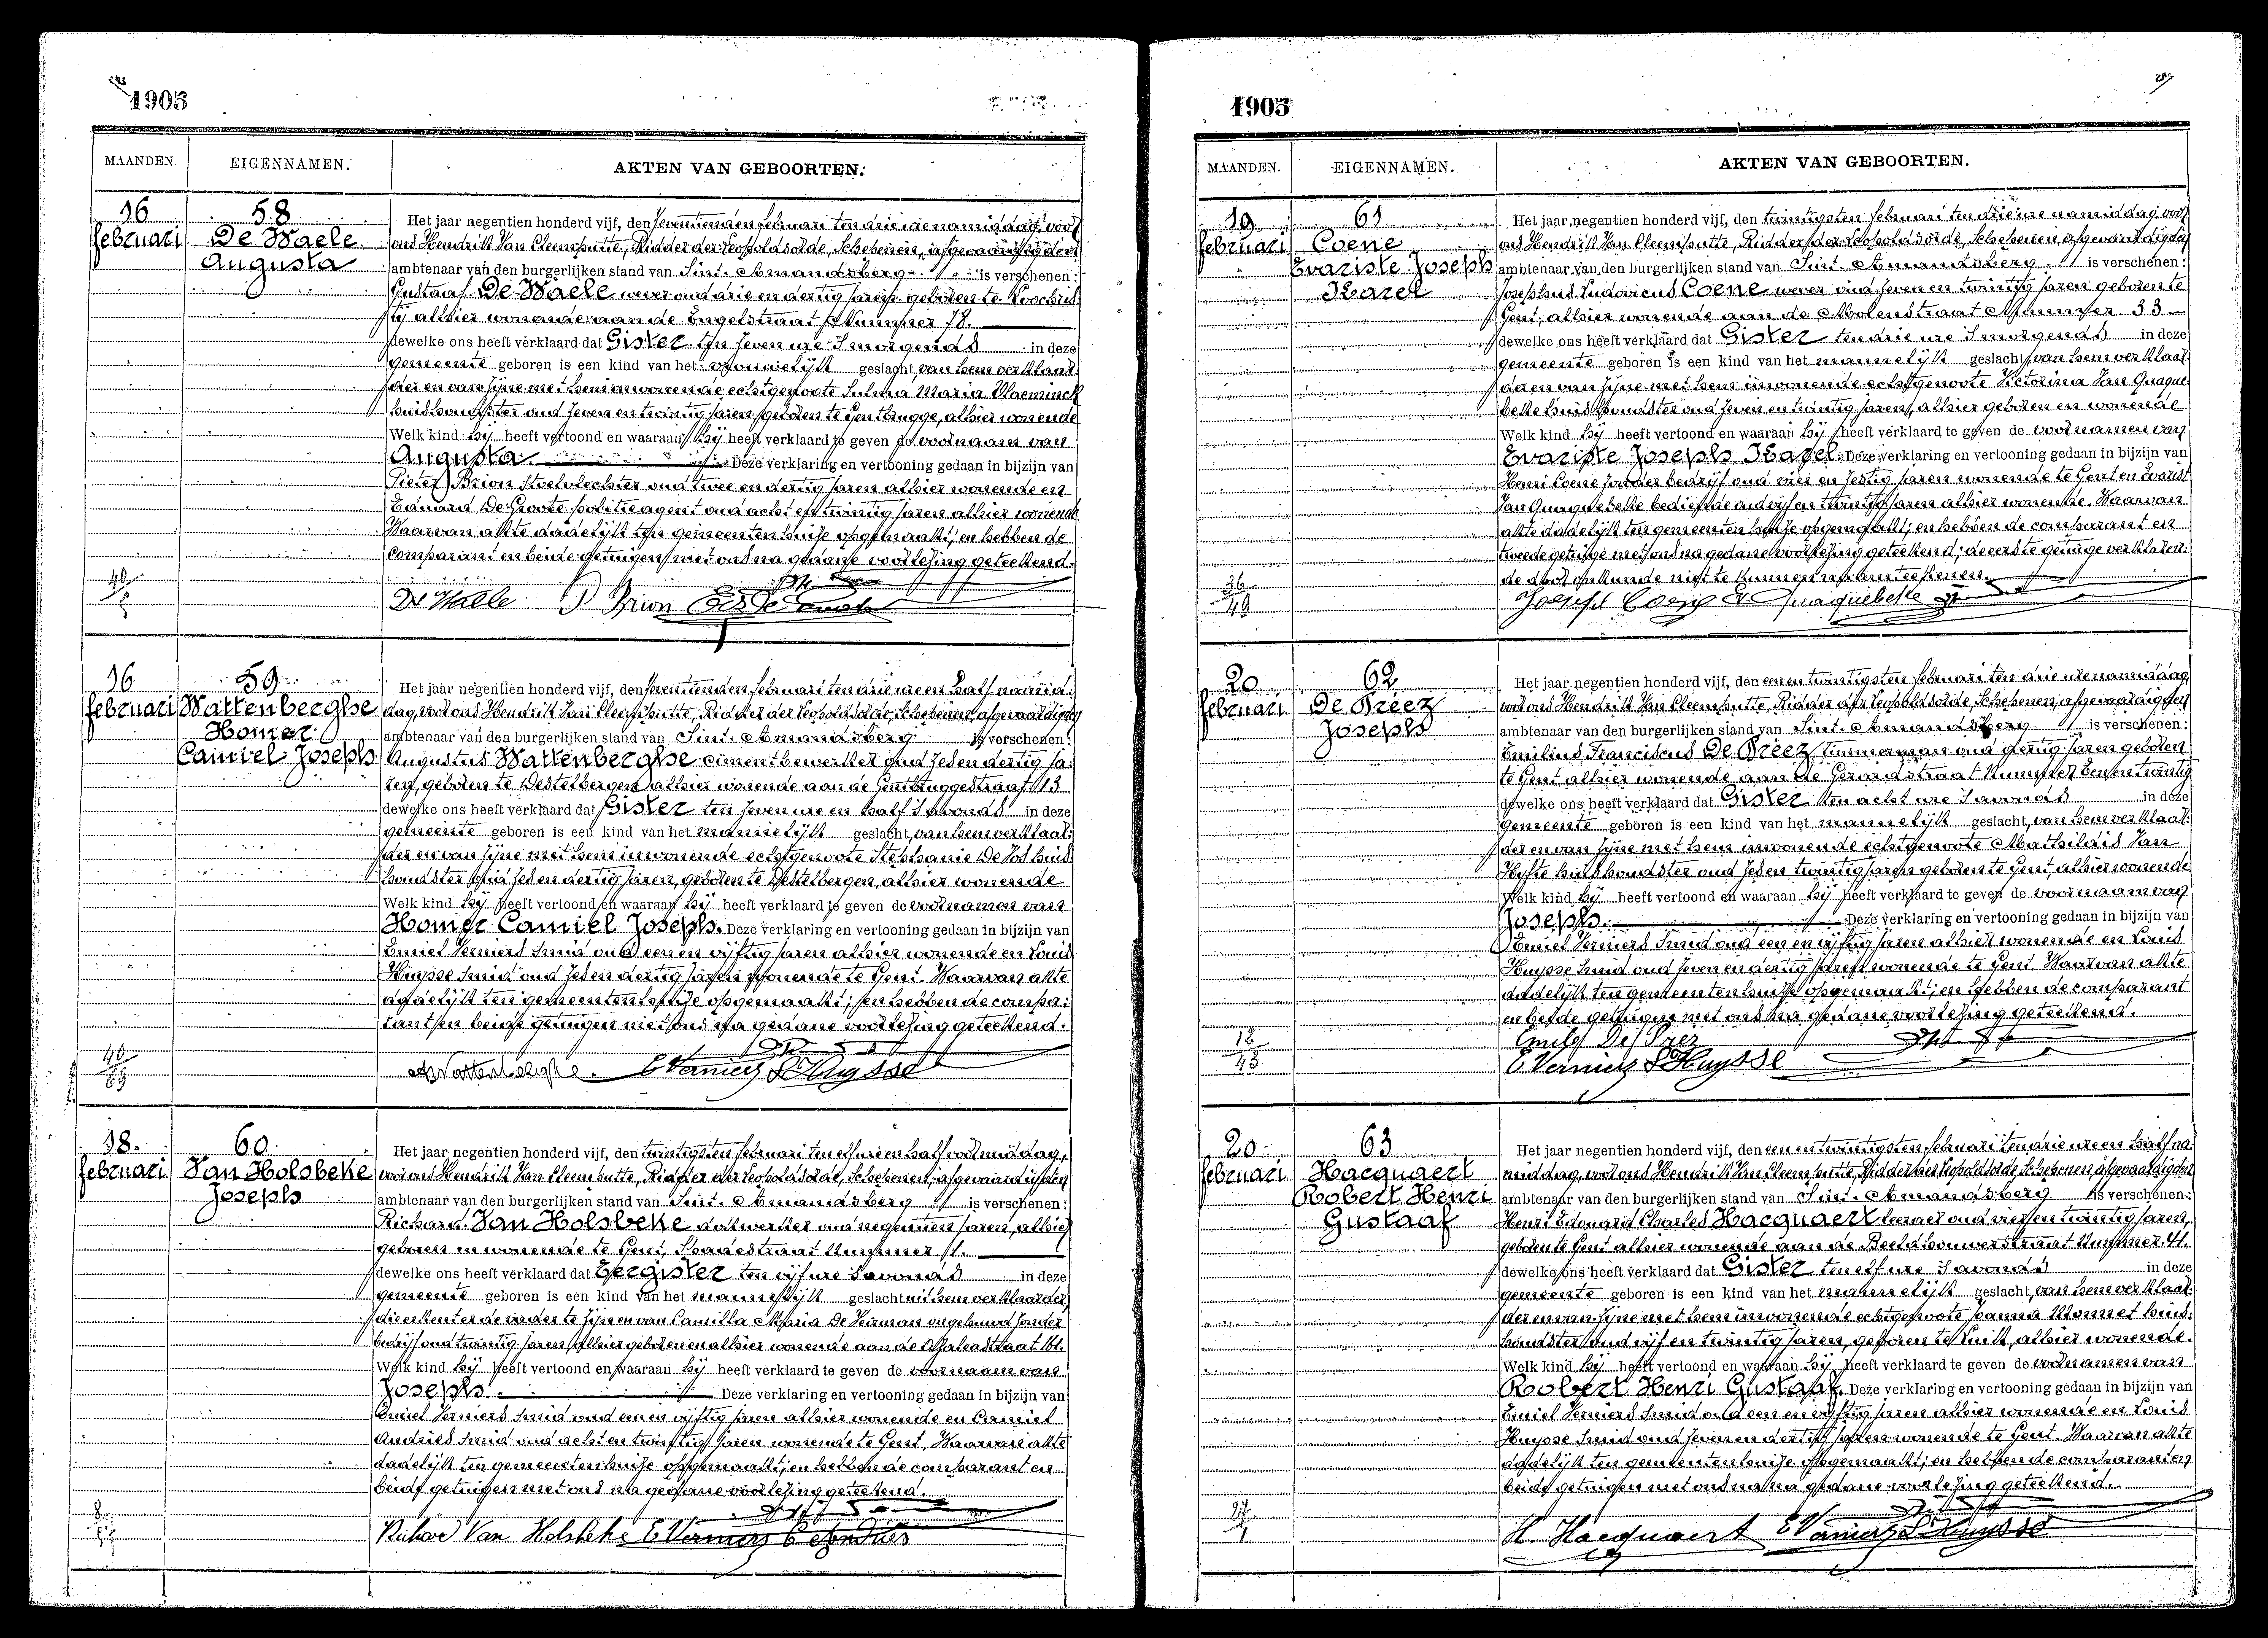 1905
MAANDEN
EIGENNAMEN.
AKTEN VAN GEBOORTEN.
16
februari
58
De Waele
Augusta
Het jaar negentien honderd vijf, den zeventienden februari ten drie ure namiddag, voor
ons Hendrik Van Cleemputte, Ridder der Leopoldsorde, Schepenen, afgevaardigden
ambtenaar van den burgerlijken stand van Sint. Amandsberg is verschenen:
Gustaaf De Waele wever oud drie en dertig jaren geboren te Loochris-
tij alhier wonende aan de Engelstraat Nummer 78.
dewelke ons heeft verklaard dat Gister ten zeven ure 's morgends in deze
gemeente geboren is een kind van het vrouwelijk geslacht, van hem verklaar-
der en van zijne met hem inwonende echtgenoote Sulma Maria Vlaeminck
huishoudster oud zeven en twintig jaren geboren te Gentbrugge, alhier wonende
Welk kind hij heeft vertoond en waaraan hij heeft verklaard te geven de voornaam van
Augusta. Deze verklaring en vertooning gedaan in bijzijn van
Pieter Brion Stoelvlechter oud twee en dertig jaren alhier wonende en
Eduard De Groote politieagent oud acht en twintig jaren alhier wonende.
Waarvan akte dadelijk ten gemeentenhuize opgemaakt; en hebben de
comparant en beide getuigen met ons na gedane voorlezing geteekend.
De Waele P Brion
16
februari
59
Wattenberghe
Homer
Camiel Joseph
Het jaar negentien honderd vijf, den zeventienden februari ten drie ure en half namid-
dag, voor ons Hendrik Van Cleemputte, Ridder der Leopoldsorde, Schepenen, afgevaardigden
ambtenaar van den burgerlijken stand van Sint. Amandsberg is verschenen:
Augustus Wattenberghe cimentbewerker oud zes en dertig ja-
ren, geboren te Destelbergen alhier wonende aan de Gentbruggestraat 113
dewelke ons heeft verklaard dat Gister ten zeven ure en half 's avonds in deze
gemeente geboren is een kind van het mannelijk geslacht, van hem verklaar-
der en van zijne met hem inwonende echtgenoote Stephanie De Vos huis-
houdster oud zes en dertig jaren, geboren te Destelbergen, alhier wonende
Welk kind hij heeft vertoond en waaraan hij heeft verklaard te geven de voornamen van
Homer Camiel Joseph. Deze verklaring en vertooning gedaan in bijzijn van
Emiel Verniers Smid oud een en vijftig jaren alhier wonende en Louis
Huysse Smid oud zes en dertig jaren wonende te Gent. Waarvan akte
dadelijk ten gemeentenhuize opgemaakt; en hebben de compa-
rant en beide getuigen met ons na gedane voorlezing geteekend.
A Wattenberghe. E Verniers L Huysse
18
februari
60
Van Holsbeke
Joseph
Het jaar negentien honderd vijf, den twintigsten februari ten elf ure en half voormiddag,
voor ons Hendrik Van Cleemputte, Ridder der Leopoldsorde, Schepenen, afgevaardigden
ambtenaar van den burgerlijken stand van Sint. Amandsberg is verschenen:
Richard Van Holsbeke dokwerker oud negentien jaren, alhier
geboren en wonende te Gent, Spadestraat Nummer 11.
dewelke ons heeft verklaard dat Eergister ten vijf ure 's avonds in deze
gemeente geboren is een kind van het mannelijk geslacht uit hem verklaarder,
die erkent er de vader te zijn en van Camilla Maria De Veirman ongehuwd zonder
bedrijf oud twintig jaren alhier geboren en alhier wonende aan de Azaleastraat 161.
Welk kind hij heeft vertoond en waaraan hij heeft verklaard te geven de voornaam van
Joseph. Deze verklaring en vertooning gedaan in bijzijn van
Emiel Verniers Smid oud een en vijftig jaren alhier wonende en Camiel
Andries Smid oud acht en twintig jaren wonende te Gent. Waarvan akte
dadelijk ten gemeentenhuize opgemaakt; en hebben de comparant en
beide getuigen met ons na gedane voorlezing geteekend.
Richard Van Holsbeke E Verniers C Andries
1905
MAANDEN.
EIGENNAMEN.
AKTEN VAN GEBOORTEN.
19
februari
61
Coene
Evariste Joseph
Karel
Het jaar negentien honderd vijf, den twintigsten februari ten drie ure namiddag, voor
ons Hendrik Van Cleemputte, Ridder der Leopoldsorde, Schepenen, afgevaardigden
ambtenaar van den burgerlijken stand van Sint. Amandsberg is verschenen:
Josephus Ludovicus Coene wever oud zeven en twintig jaren geboren te
Gent, alhier wonende aan de Molenstraat Nummer 33
dewelke ons heeft verklaard dat Gister ten drie ure 's morgends in deze
gemeente geboren is een kind van het mannelijk geslacht, van hem verklaar-
der en van zijne met hem inwonende echtgenoote Victorina Van Quaque-
beke huishoudster oud zeven en twintig jaren, alhier geboren en wonende
Welk kind hij heeft vertoond en waaraan hij heeft verklaard te geven de voornamen van
Evariste Joseph Karel. Deze verklaring en vertooning gedaan in bijzijn van
Henri Coene zonder bedrijf oud vier en zestig jaren wonende te Gent en Evarist
Van Quaquebeke bediende oud vijf en twintig jaren alhier wonende. Waarvan
akte dadelijk ten gemeentenhuize opgemaakt; en hebben de comparant en
tweede getuige met ons na gedane voorlezing geteekend; de eerste getuige verklaren-
de door onkunde niet te kunnen naamteekenen.
36
49
Joseph Coene E V Quaquebeke
20
februari
62
De Preez
Joseph
Het jaar negentien honderd vijf, den een en twintigsten februari ten drie ure namiddag,
voor ons Hendrik Van Cleemputte, Ridder der Leopoldsorde, Schepenen, afgevaardigden
ambtenaar van den burgerlijken stand van Sint. Amandsberg is verschenen:
Emilius Franciscus De Preez timmerman oud dertig jaren geboren
te Gent alhier wonende aan de Gerardstraat Nummer Een en twintig
dewelke ons heeft verklaard dat Gister ten acht ure 's avonds in deze
gemeente geboren is een kind van het mannelijk geslacht, van hem verklaar-
der en van zijne met hem inwonende echtgenoote Mathildis Van
Hyfte huishoudster oud zes en twintig jaren geboren te Gent, alhier wonende
Welk kind hij heeft vertoond en waaraan hij heeft verklaard te geven de voornaam van
Joseph. Deze verklaring en vertooning gedaan in bijzijn van
Emiel Verniers Smid oud een en vijftig jaren alhier wonende en Louis
Huysse Smid oud zeven en dertig jaren wonende te Gent. Waarvan akte
dadelijk ten gemeentenhuize opgemaakt; en hebben de comparant
en beide getuigen met ons na gedane voorlezing geteekend.
E Verniers L Huysse
20
februari
63
Hacquaert
Robert Henri
Gustaaf
Het jaar negentien honderd vijf, den een en twintigsten februari ten drie ure en half na-
middag, voor ons Hendrik Van Cleemputte, Ridder der Leopoldsorde, Schepenen, afgevaardigden
ambtenaar van den burgerlijken stand van Sint. Amandsberg is verschenen:
Henri Edouard Charles Hacquaert leeraer oud vier en twintig jaren,
geboren te Gent alhier wonende aan de Beeldhouwersstraat Nummer 41.
dewelke ons heeft verklaard dat Gister ten elf ure 's avonds in deze
gemeente geboren is een kind van het mannelijk geslacht, van hem verklaar-
der en van zijne met hem inwonende echtgenoote Joanna Monnet huis-
houdster oud vijf en twintig jaren, geboren te Luik, alhier wonende.
Welk kind hij heeft vertoond en waaraan hij heeft verklaard te geven de voornamen van
Robert Henri Gustaaf. Deze verklaring en vertooning gedaan in bijzijn van
Emiel Verniers Smid oud een en vijftig jaren alhier wonende en Louis
Huysse Smid oud zeven en dertig jaren wonende te Gent. Waarvan akte
dadelijk ten gemeentenhuize opgemaakt; en hebben de comparant en
beide getuigen met ons na na gedane voorlezing geteekend.
H. Hacquaert E Verniers L Huysse